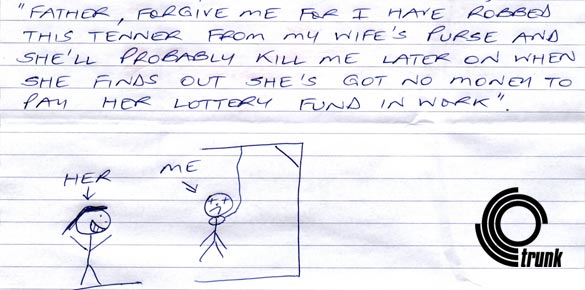 "FATHER, FORGIVE ME FOR I HAVE ROBBED
THIS TENNER FROM MY WIFE'S PURSE AND
SHE'LL PROBABLY KILL ME LATER ON WHEN
SHE FINDS OUT SHE'S GOT NO MONEY TO
PAY HER LOTTERY FUND IN WORK".
HER
ME
trunk